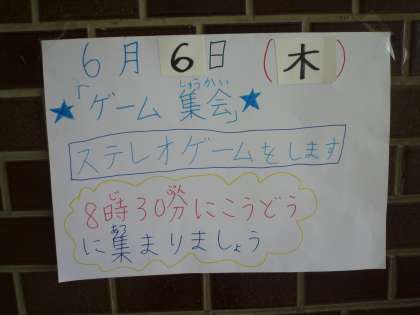 6月6日(木)
「ゲーム集会」
ステレオゲームをします
8時30分にこうどう
に集まりましょう